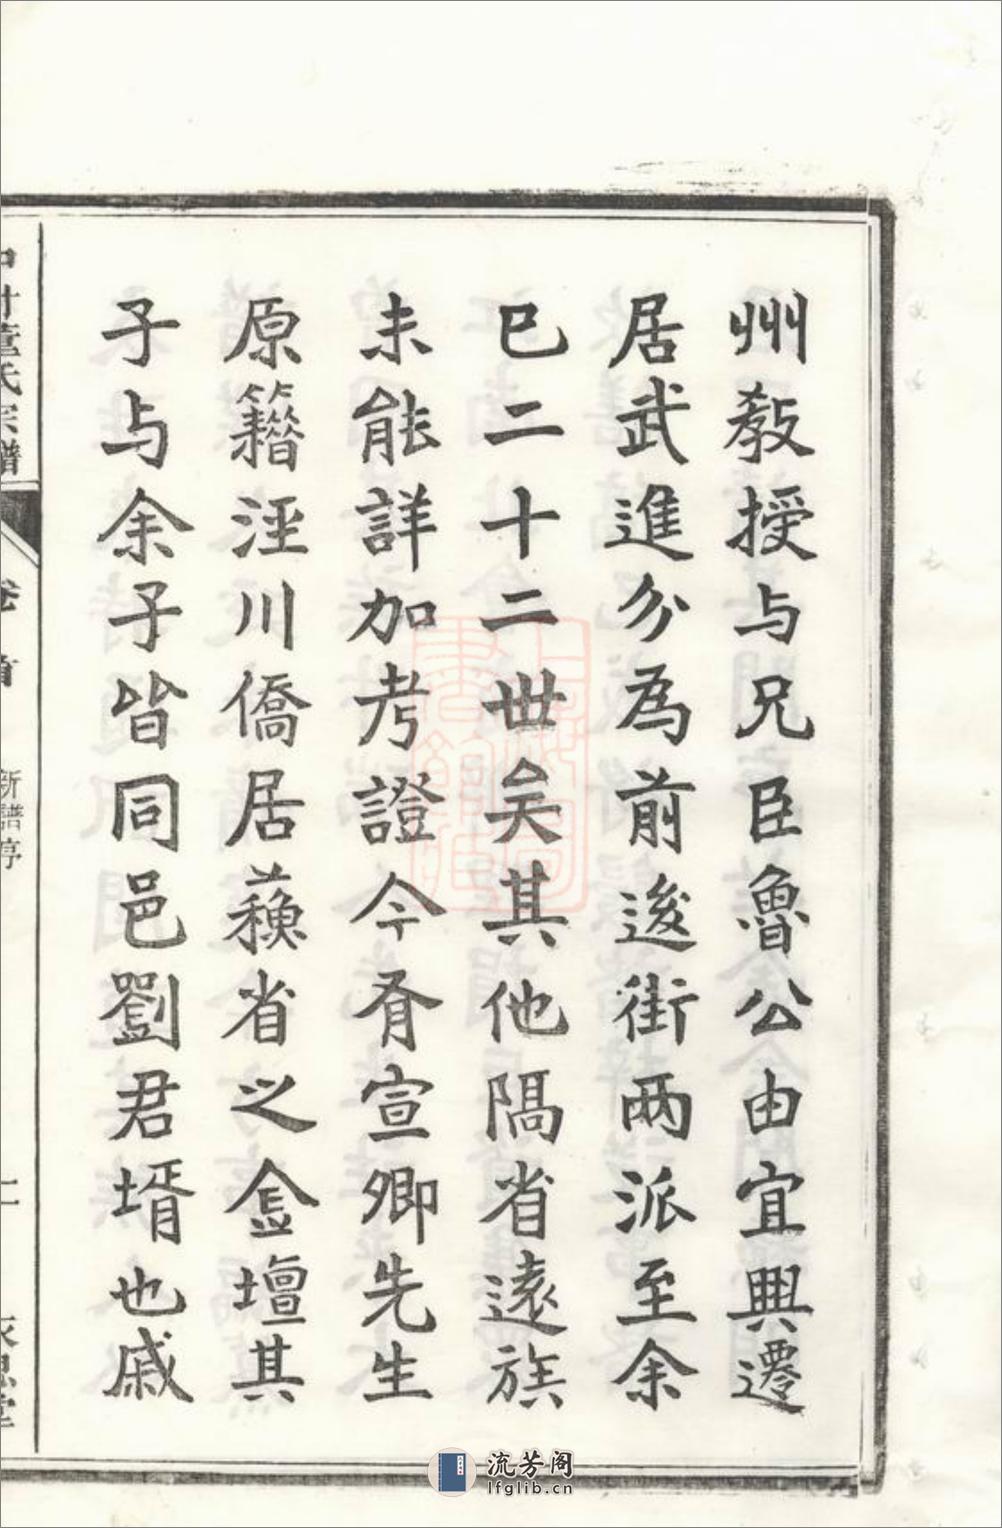 州敎授与兄臣魯公由宜興遷
居武進分為前後街两派至余
已二十二世矣其他隔省遠族
未能詳加考證今有宣卿先生
原籍涇川僑居蘓省之金壇其
子与余子皆同邑劉君壻也戚
董氏宗譜
卷首
新譜序
二
流芳阁
lfglib.cn